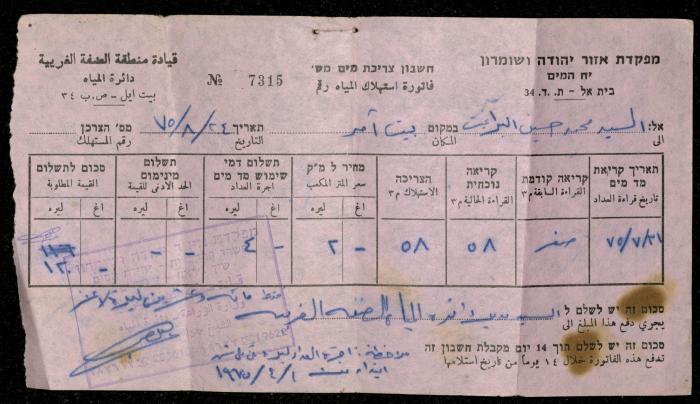 מפקדת אזור יהודה ושומרון
יח המים
בית אל - ת. ד. 34
חשבון צריכת מים מס׳
فاتورة استهلاك المياه رقم
№ 7315
قيادة منطقة الضفة الغربية
دائرة المياه
بيت ايل - ص.ب ٣٤
אל: السيد محمد حسين
الى
במקום بيت أمر
المكان
תאריך ٧٥/٨/٢٤
التاريخ
מס׳ הצרכן
رقم المستهلك
תאריך קריאת מד מים
تاريخ قراءة العداد
קריאה קודמת
القراءة السابقة م٣
קריאה נוכחית
القراءة الحالية م٣
הצריכה
الاستهلاك م٣
מחיר ל מ"ק
سعر المتر المكعب
תשלום דמי שימוש מד מים
اجرة العداد
תשלום מינימום
الحد الادنى للقيمة
סכום לתשלום
القيمة المطلوبة
אג ليره
אג ليره
אג ليره
אג ليره
٧٥/٧/٣١
صفر
٥٨
٥٨
- ٢
- ٤
- -
١٢٠
فقط مائة وعشرين ليرة لا غير
סכום זה יש לשלם ל السيد مدير دائرة المياه الضفة الغربية
يجري دفع هذا المبلغ الى
סכום זה יש לשלם תוך 14 יום מקבלת חשבון זה
تدفع هذه الفاتورة خلال ١٤ يوما من تاريخ استلامها
ملاحظة: اجرة العداد ليره
ابتداء من ١٩٧٥/٤/١